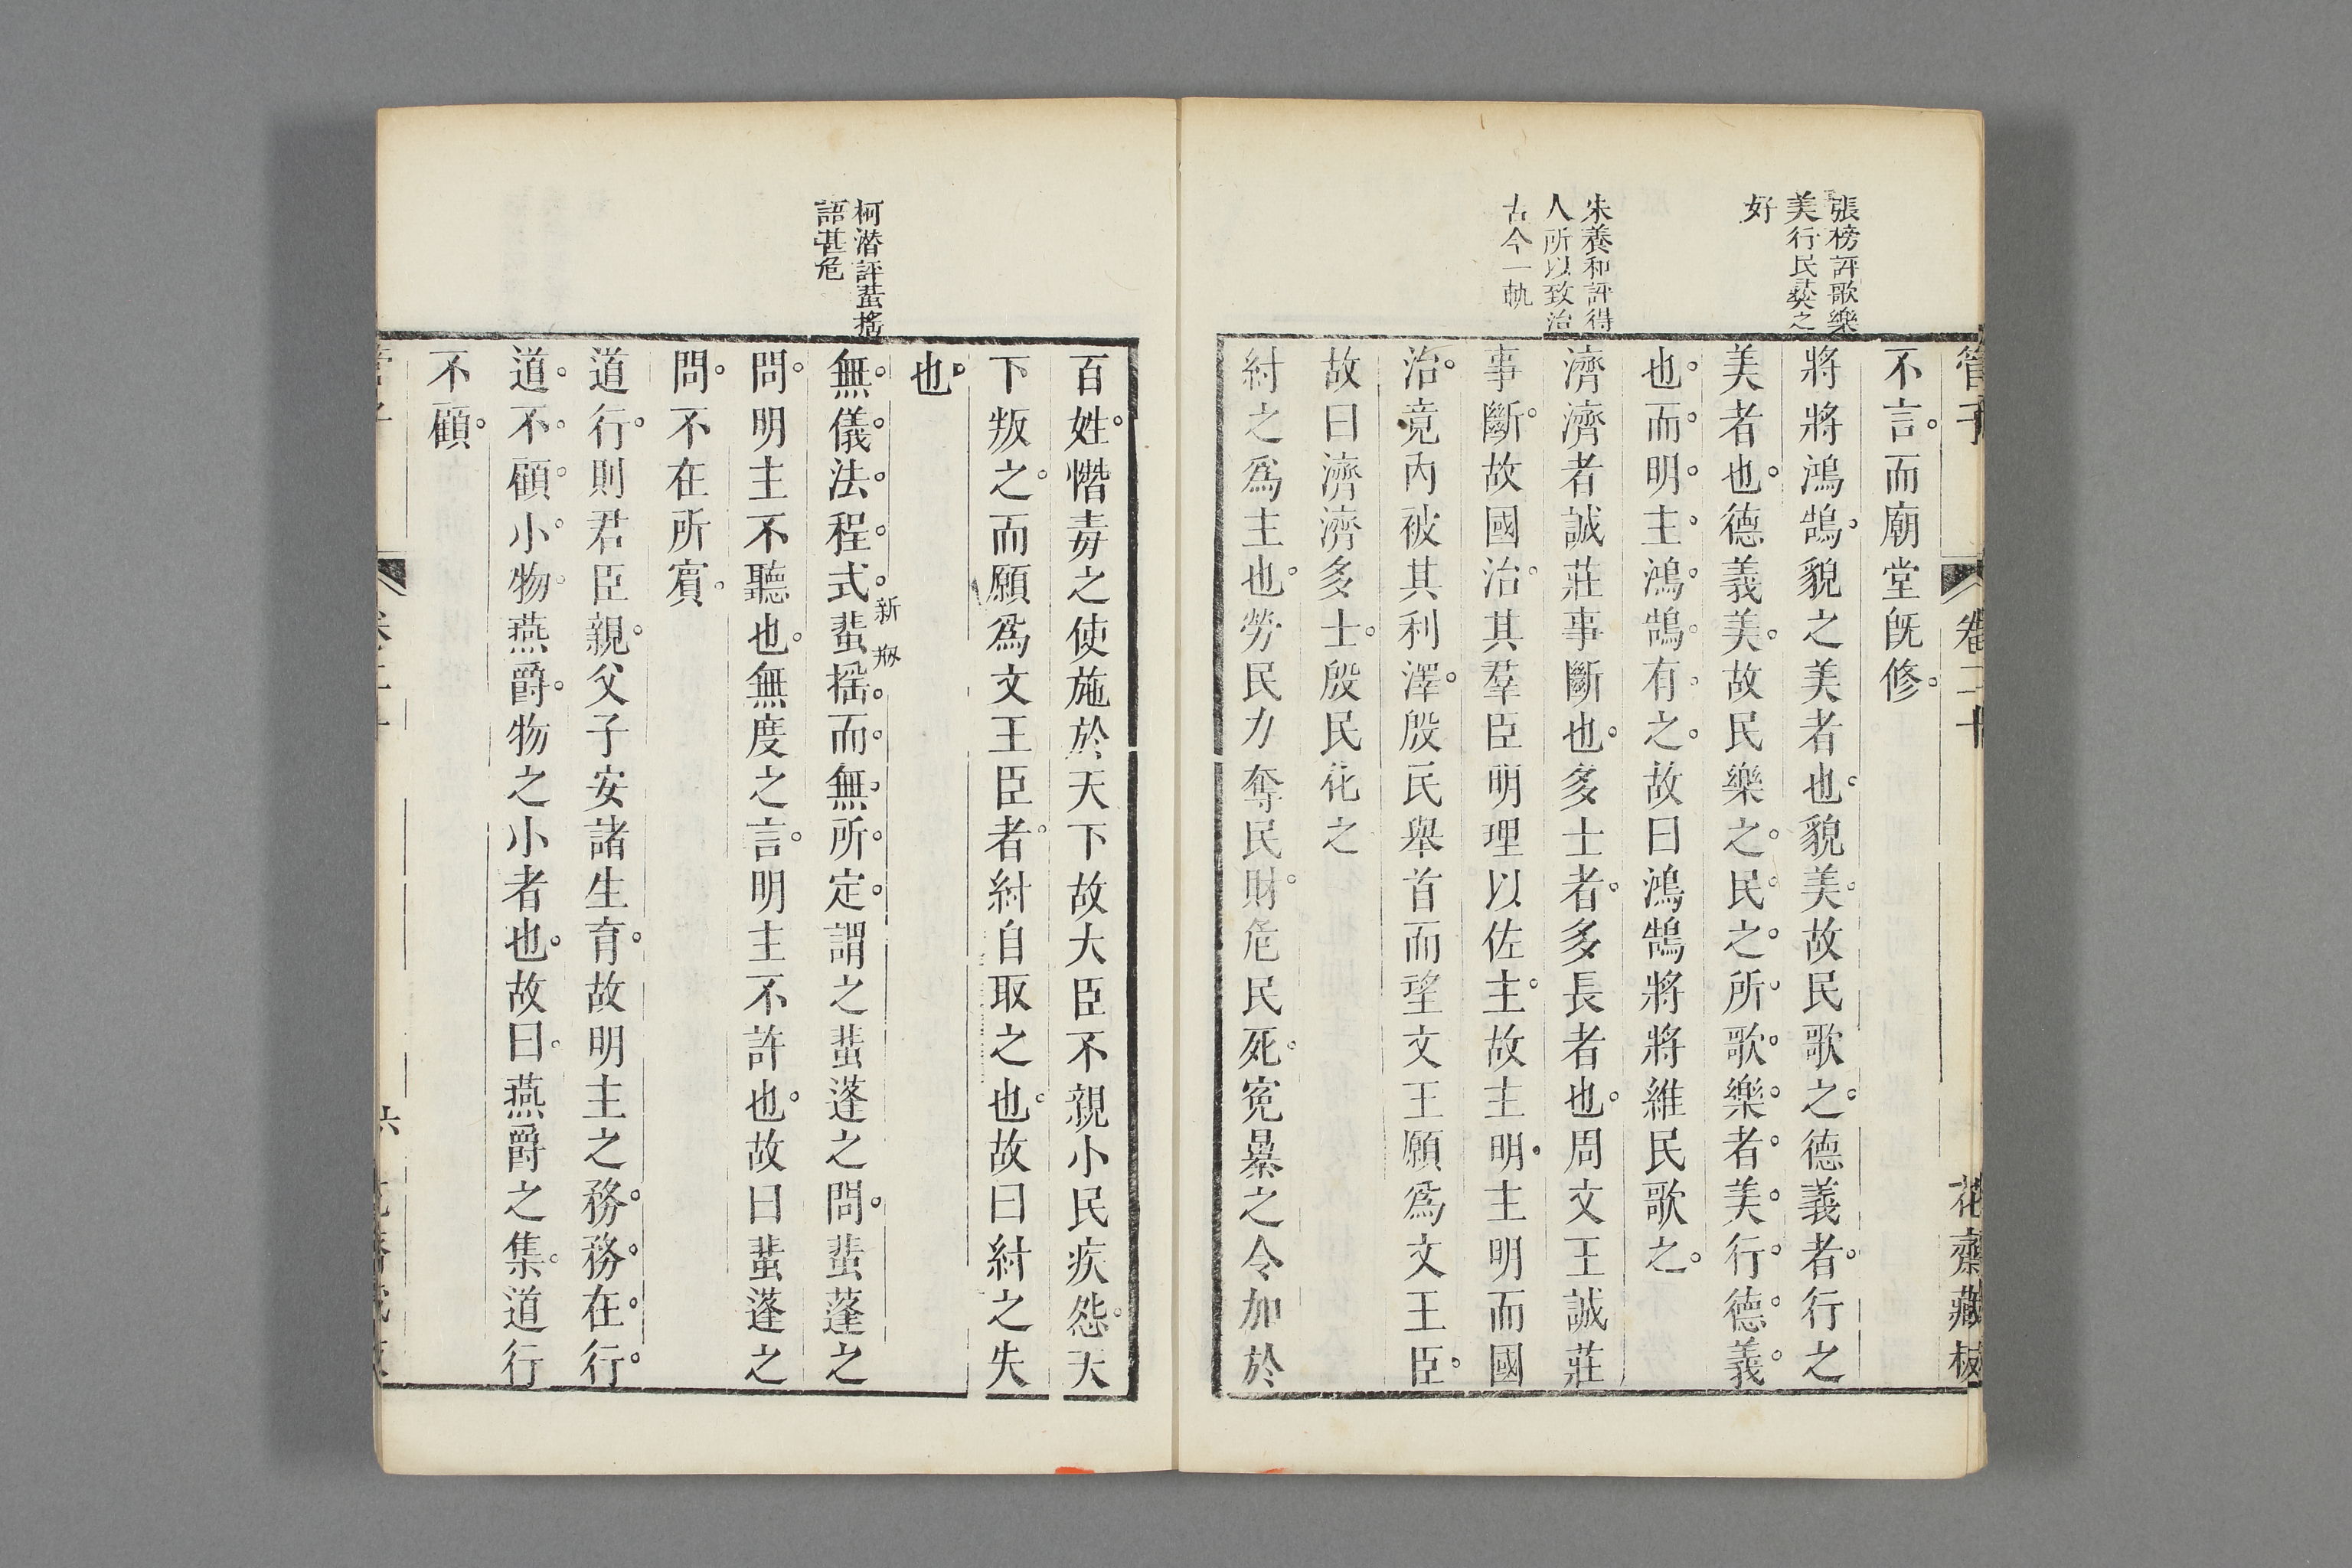 管子
卷二十
花齋藏板
張榜評歌樂
美行民彛之
好
朱養和評得
人所以致治
古今一軌
不言而廟堂旣修
將將鴻鵠貌之美者也貌美故民歌之德義者行之
美者也德義美故民樂之民之所歌樂者美行德義
也而明主鴻鵠有之故曰鴻鵠將將維民歌之
濟濟者誠莊事斷也多士者多長者也周文王誠莊
事斷故國治其羣臣明理以佐主故主明主明而國
治竟內被其利澤殷民舉首而望文王願爲文王臣
故曰濟濟多士殷民化之
紂之爲主也勞民力奪民財危民死寃暴之令加於
柯潛評蜚搖
語甚危
百姓憯毒之使施於天下故大臣不親小民疾怨天
下叛之而願爲文王臣者紂自取之也故曰紂之失
也
無儀法程式蜚搖而無所定謂之蜚蓬之問蜚蓬之
問明主不聽也無度之言明主不許也故曰蜚蓬之
問不在所賓
道行則君臣親父子安諸生育故明主之務務在行
道不顧小物燕爵物之小者也故曰燕爵之集道行
不顧
六